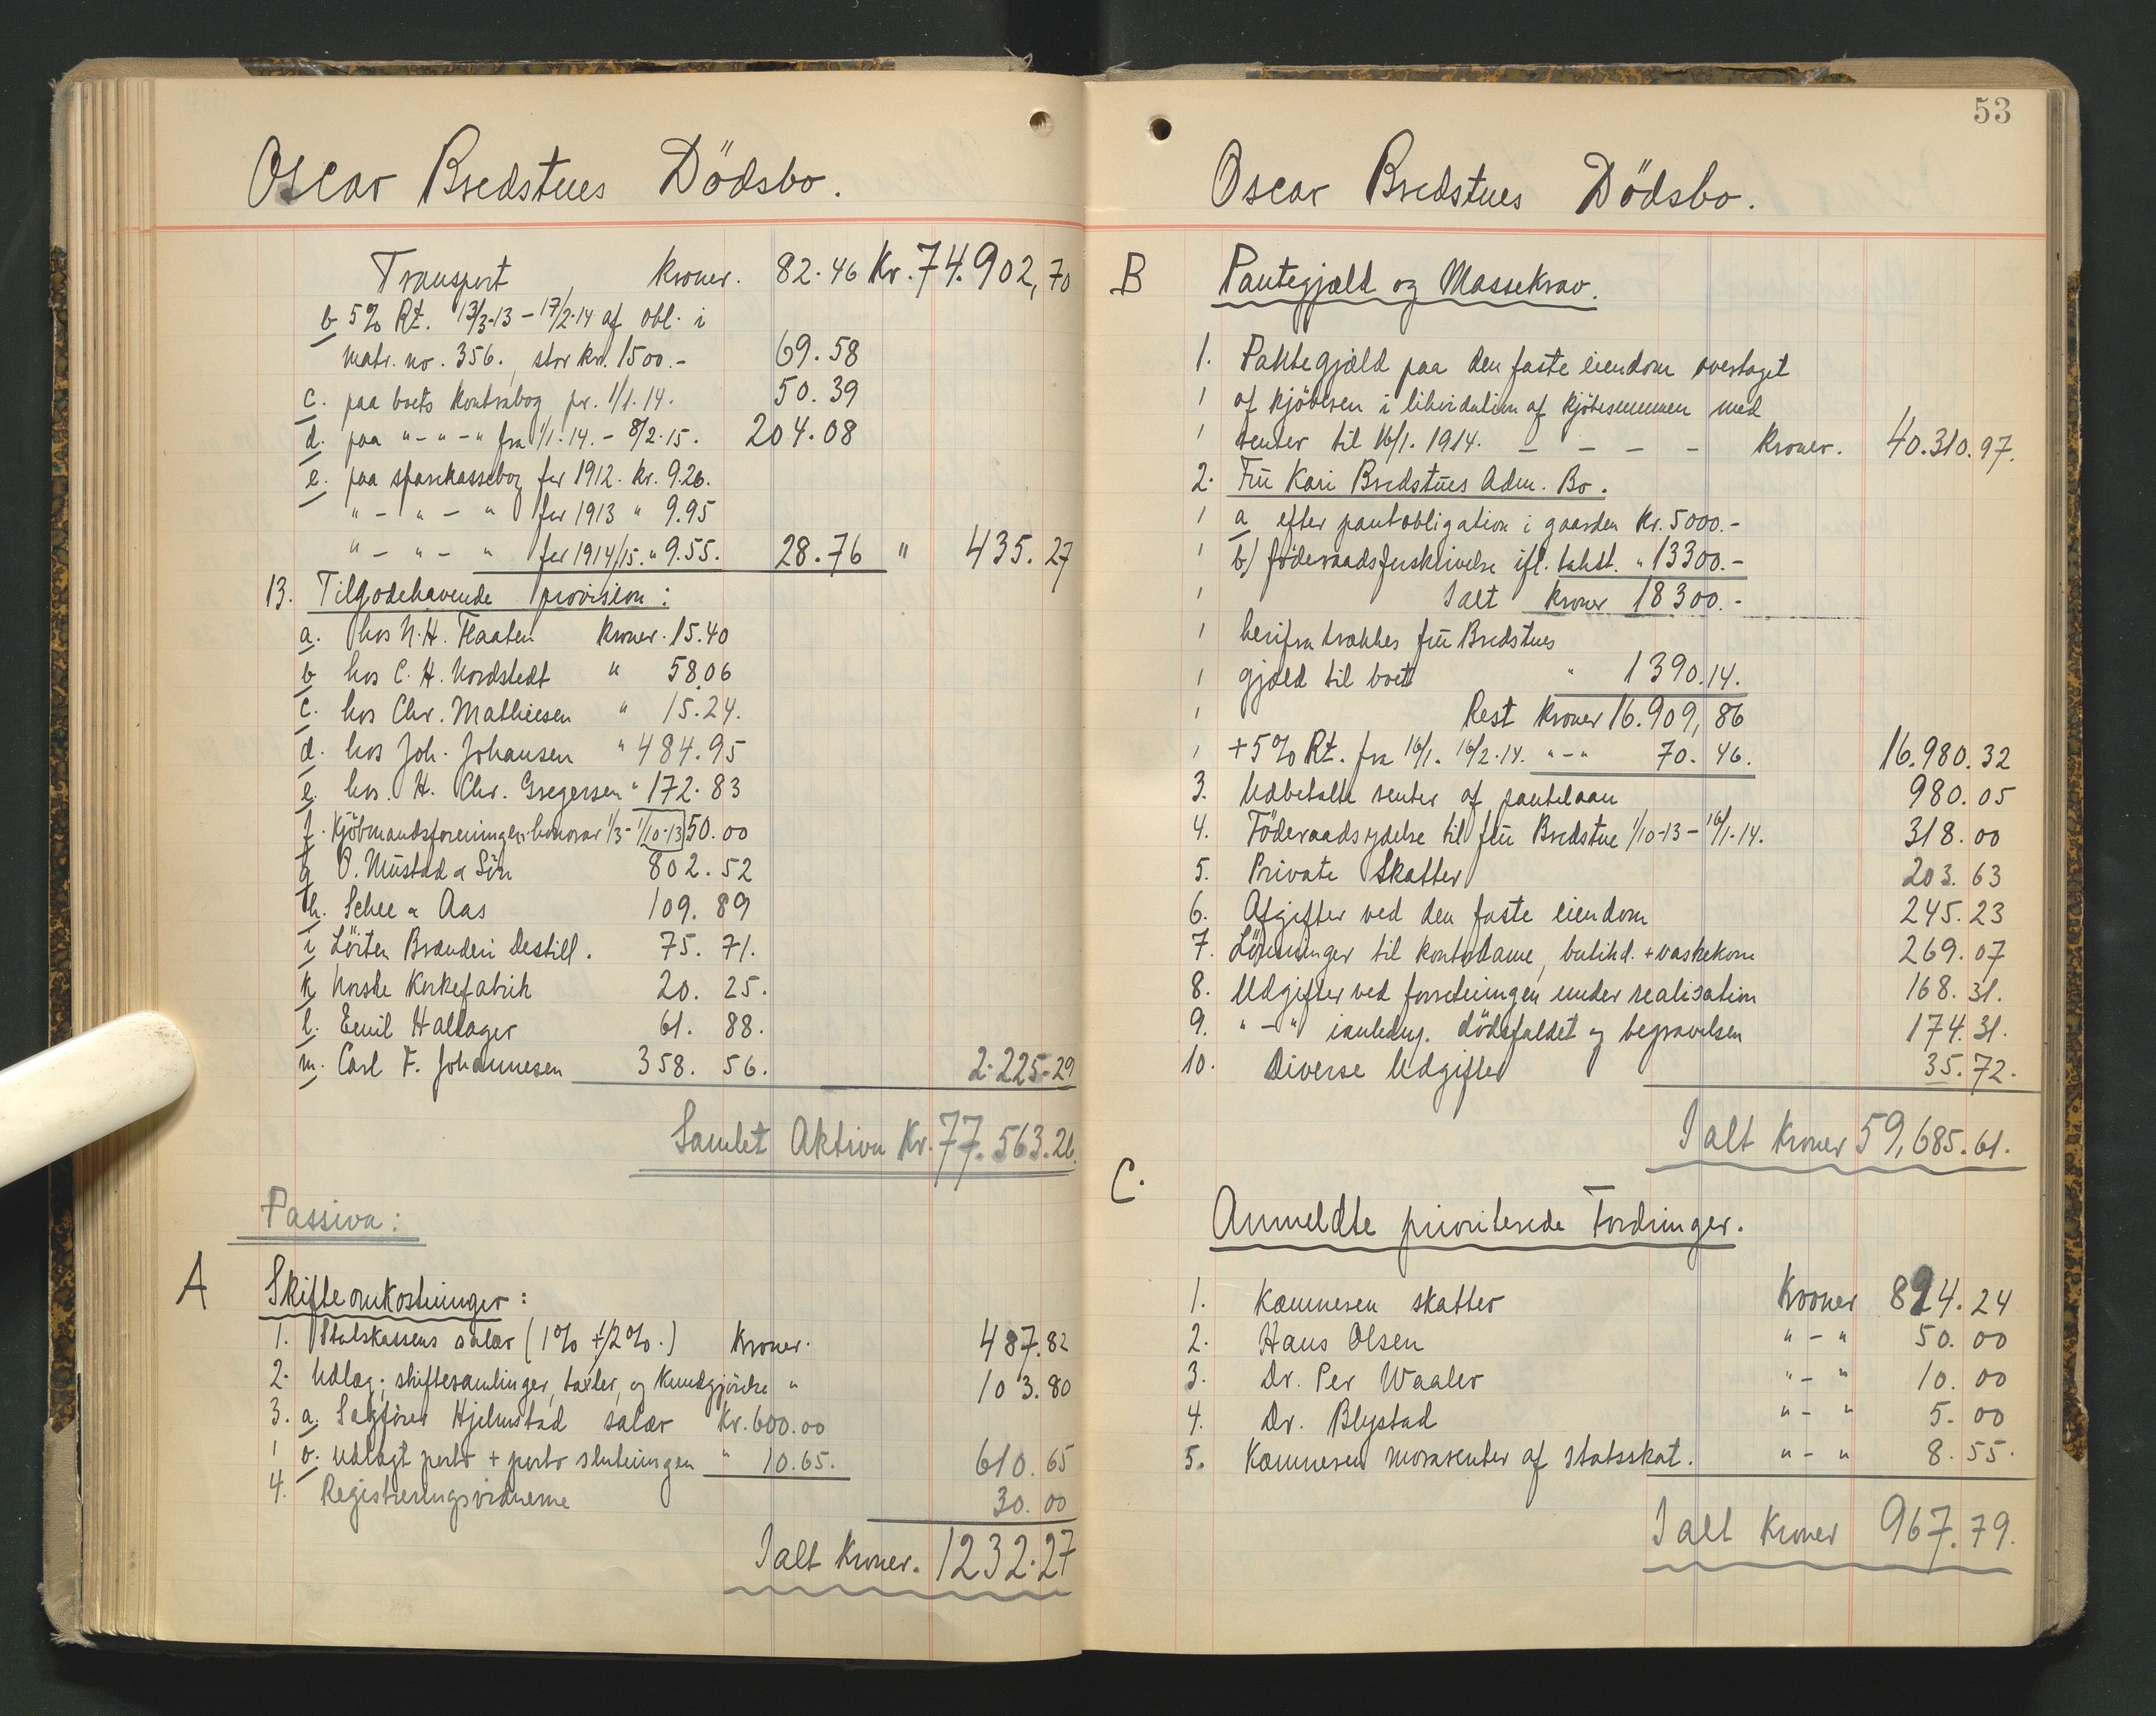 Oscar Bredstues Dödsbo.
Transport Kroner. 82.46 Kr. 74.902,70
b 5% Rt. 13/3-13 – 17/2-14 af obl. i
matr. no. 356., stor kr. 1500.-
69.58
c. paa boets Kontrabog pr. 1/1.14. 50.39
d. paa " - " - " fra 1/1-14. - 8/2-15. 204.08
e. paa sparekassebog for 1912. kr. 9.26.
" - " - " for 1913 " 9.95
" - " - " for 1914/15. " 9.55. 28.76 " 435.27
13. Tilgodehavende provision:
a. hos N. H. Flaaten Kroner. 15.40
b hos C. H. Nordstedt " 58.06
c. hos Chr. Mathiesen " 15.24.
d. hos Joh. Johansen " 484.95
e. hos. H. Chr. Gregersen " 172.83
f. Kjöbmandsforeningen honorar 1/3 - 1/10-13 50.00
g O. Mustad & Sön 802.52
h. Schee & Aas 109.89
i Löiten Brænderi Destill. 75.71.
k Norske Korkefabrik 20.25.
l. Emil Hallager 61.88.
m. Carl F. Johannesen 358.56. 2.225-29
Samlet Aktiva Kr. 77.563.26.
Passiva:
A Skifteomkostninger:
1. Statskassens salær (1% + 1/2%.) Kroner. 487.82
2. Udlæg; skiftesamlinger, taxter, og Kundgjörelse " 103.80
3. a. Sagförer Hjelmstad salær Kr. 600.00
b. Udlagt porto + porto slutningen " 10.65. 610.65
4. Registreringsvidnerne 30.00
Ialt Kroner. 1232.27
53
Oscar Bredstues Dödsbo.
B Pantegjæld og Massekrav.
1. Pantegjæld paa den faste eiendom overtaget
af kjöberen i likvidation af kjöbesummen med
renter til 16/1. 1914. – – – – Kroner. 40.310.97.
2. Frü Kari Bredstües Adm. Bo.
a efter pantobligation i gaarden Kr. 5000.-
b) föderaadsforskrivelse ifl. takst. " 13300.-
Ialt Kroner 18300.-
herifra trækkes frü Bredstues
gjæld til boet " 1390.14.
Rest Kroner 16.909,86
+ 5% Rt. fra 16/1. 16/2-14. " - " 70.46. 16.980.32
3. Udbetalte renter af pantelaan 980.05
4. Föderaadsydelse til frü Bredstue 1/10-13 – 16/1-14. 318.00
5. Private Skatter 203.63
6. Afgifter ved den faste eiendom 245.23
7. Lönninger til kontordame, butikd. + vaskekone 269.07
8. Udgifter ved forretningen under realisation 168.31.
9. " - " i anledng. dödsfaldet og begravelsen 174.31.
10. Diverse Udgifter 35.72.
Ialt Kroner 59,685.61.
C. Anmeldte prioriterede Fordringer.
1. Kæmneren skatter Kroner 894.24
2. Hans Olsen " - " 50.00
3. Dr. Per Waaler " - " 10.00
4. Dr. Blystad " - " 5.00
5. Kæmneren morarenter af statsskat. " - " 8.55.
Ialt Kroner 967.79.